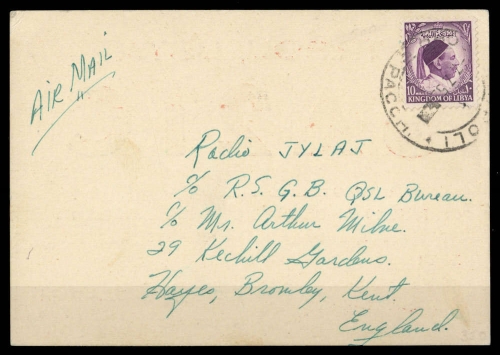 AIR MAIL
10
KINGDOM OF LIBYA
OLI
Radio JYLAJ
c/o R.S.G.B. QSL Bureau.
c/o Mr. Arthur Milne.
29 Kechill Gardens.
Hayes, Bromley, Kent.
England.